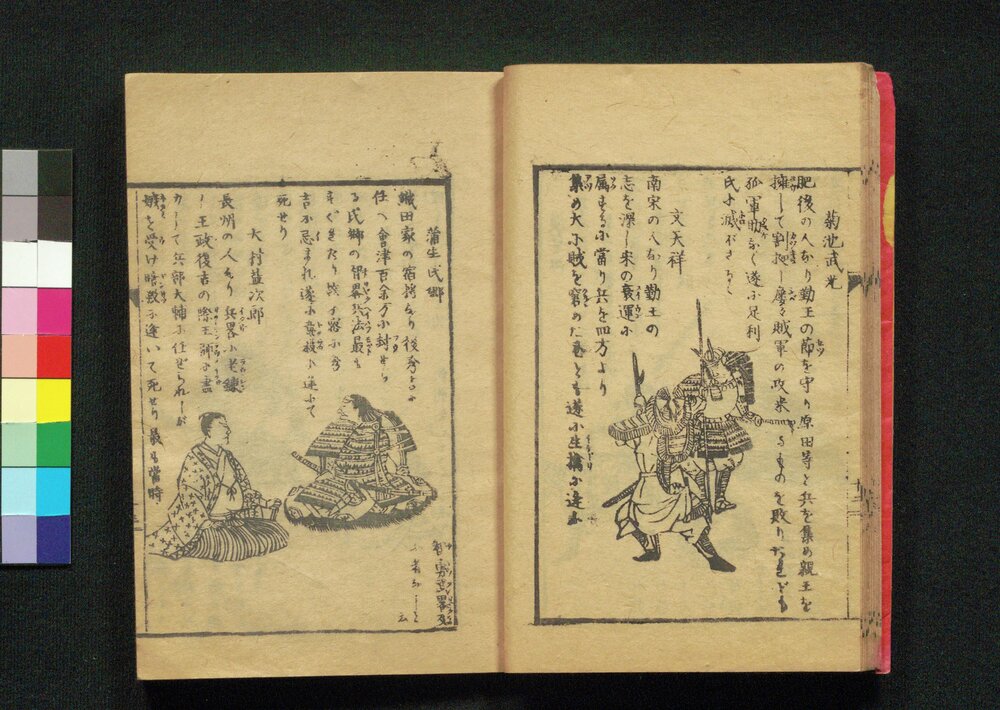 菊池武光
肥後の人なり勤王の節を守り原田等と兵を集め親王を
擁して割拠し屡々賊軍の攻来るものを敗りたれども
孤軍助なく遂に足利
氏に滅ぼさる
文天祥
南宋の人なり勤王の
志を深し宋の衰運に
属するに當り兵を四方より
集め大に賊を窘めたれども遂に生擒に逢ふ
蒲生氏郷
織田家の宿将なり後秀吉に
任へ會津百余万に封せら
る氏郷の智畧兵法最も
すぐれたり
吉に忌まれ遂に毒殺に逢ふて
死せり
大村益次郎
長州の人なり兵畧に老錬
し王政復古の際王師に盡
力して兵部大輔に任ぜられしが
嫉を受け暗殺に逢いて死せり最も當時